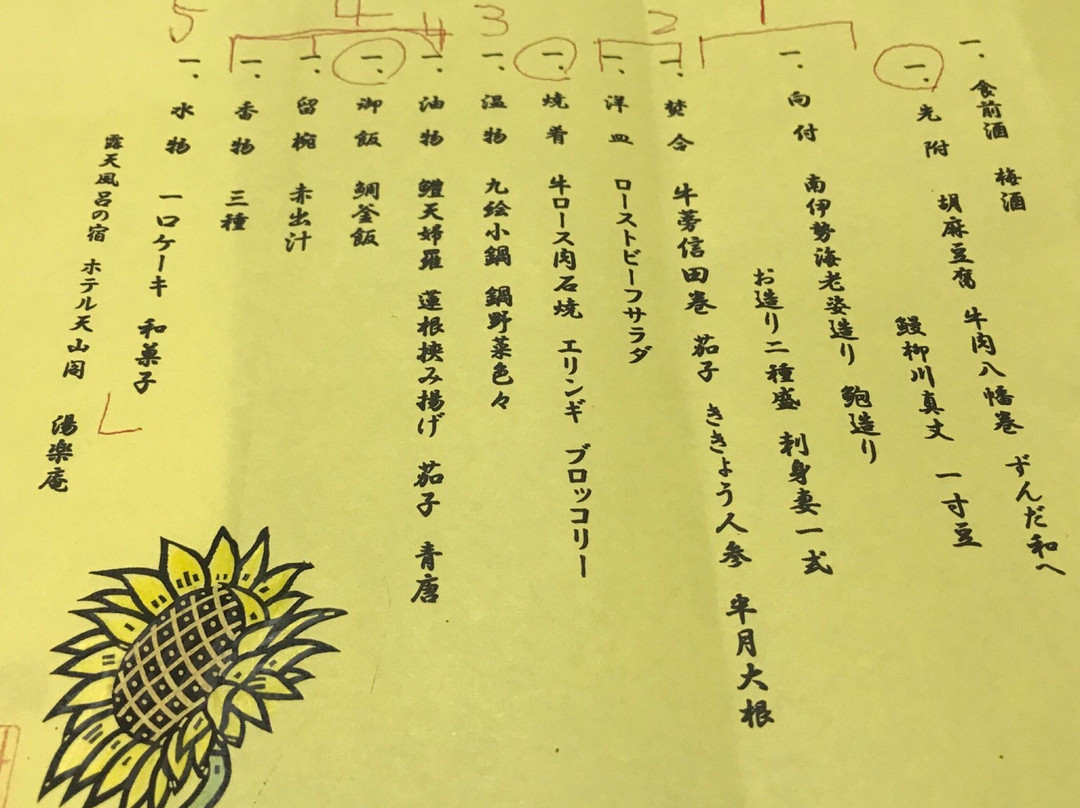 一、食前酒 梅酒
一、先附 胡麻豆腐 牛肉八幡巻 ずんだ和へ
鰻柳川真丈 一寸豆
一、向付 南伊勢海老姿造り 鮑造り
お造り二種盛 刺身妻一式
一、焚合 牛蒡信田巻 茄子 ききょう人参 半月大根
一、洋皿 ローストビーフサラダ
一、焼肴 牛ロース肉石焼 エリンギ ブロッコリー
一、温物 九絵小鍋 鍋野菜色々
一、油物 鱧天婦羅 蓮根挟み揚げ 茄子 青唐
一、御飯 鯛釜飯
一、留椀 赤出汁
一、香物 三種
一、水物 一口ケーキ 和菓子
露天風呂の宿 ホテル天山閣 湯楽庵
1
2
3
4
5